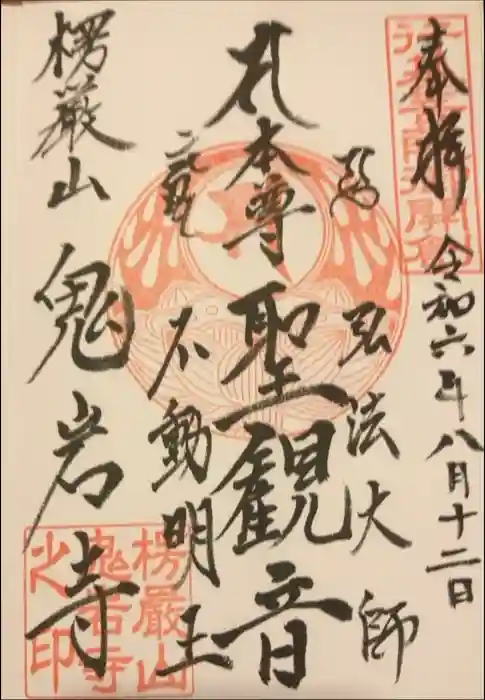 奉拝
令和六年八月十二日
弘法大師
本尊
聖観音
不動明王
楞厳山
鬼岩寺
楞厳山
鬼岩寺
之印